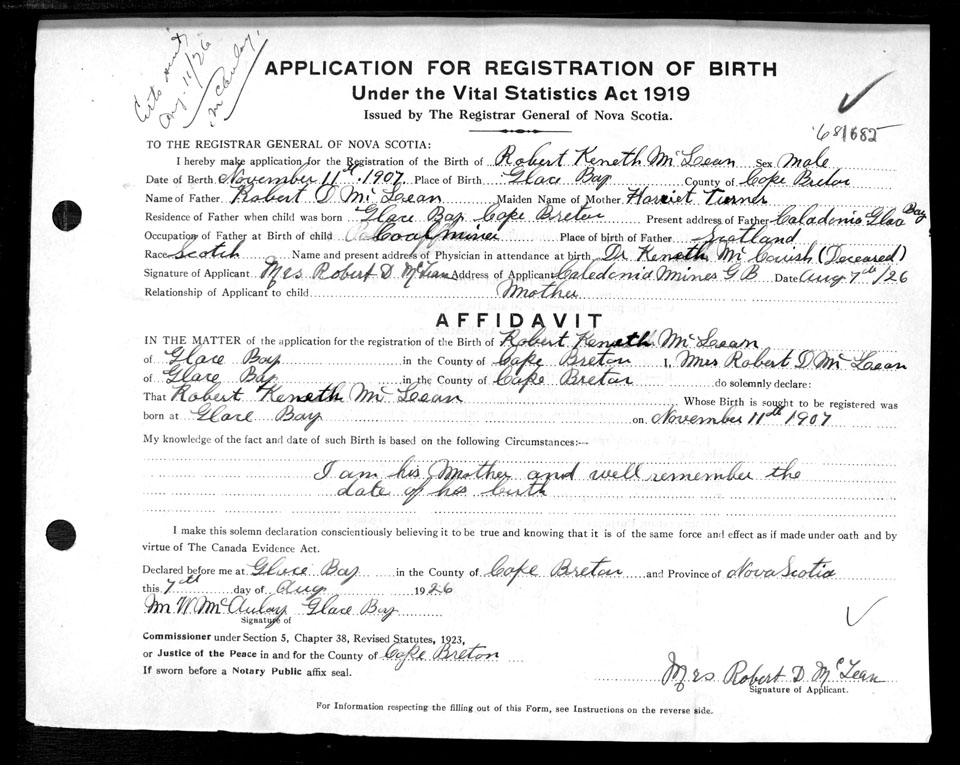 Certs sent
Aug. 11/26
McAulay.
APPLICATION FOR REGISTRATION OF BIRTH
Under the Vital Statistics Act 1919
Issued by The Registrar General of Nova Scotia.
681685
TO THE REGISTRAR GENERAL OF NOVA SCOTIA:
I hereby make application for the Registration of the Birth of Robert Keneth McLean Sex Male
Date of Berth November 11th. 1907 Place of Birth Glace Bay County of Cape Breton
Name of Father Robert D McLean Maiden Name of Mother Harriet Turner
Residence of Father when child was born Glace Bay Cape Breton Present address of Father Caladonia Glace Bay
Occupation of Father at Birth of child Coal miner Place of birth of Father Scotland
Race Scotch Name and present address of Physician in attendance at birth Dr Keneth McCuish (Deceased)
Signature of Applicant Mrs Robert D. McLean Address of Applicant Caledonia Mines G B Date Aug 7th/26
Relationship of Applicant to child Mother
AFFIDAVIT
IN THE MATTER of the application for the registration of the Birth of Robert Keneth McLean
of Glace Bay in the County of Cape Breton I, Mrs Robert D McLean
of Glace Bay in the County of Cape Breton do solemnly declare:
That Robert Keneth McLean Whose Birth is sought to be registered was
born at Glace Bay on November 11th 1907
My knowledge of the fact and date of such Birth is based on the following Circumstances:—
I am his Mother and well remember the
date of his birth
I make this solemn declaration conscientiously believing it to be true and knowing that it is of the same force and effect as if made under oath and by
virtue of The Canada Evidence Act.
Declared before me at Glace Bay in the County of Cape Breton and Province of Nova Scotia
this 7th day of Aug 1926
Mn W McAulay Glace Bay
Signature of
Commissioner under Section 5, Chapter 38, Revised Statutes, 1923,
or Justice of the Peace in and for the County of Cape Breton
If sworn before a Notary Public affix seal.
Mrs Robert D. McLean
Signature of Applicant.
For Information respecting the filling out of this Form, see Instructions on the reverse side.